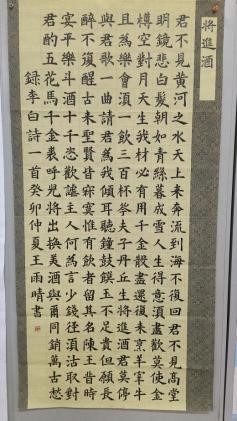 將進酒
君不見黃河之水天上來奔流到海不復回君不見高堂
明鏡悲白髮朝如青絲暮成雪人生得意須盡歡莫使金
樽空對月天生我材必有用千金散盡還復來烹羊宰牛
且爲樂會須一飲三百杯岑夫子丹丘生將進酒君莫停
與君歌一曲請君爲我傾耳聽鐘鼓饌玉不足貴但願長
醉不復醒古來聖賢皆寂寞惟有飲者留其名陳王昔時
宴平樂斗酒十千恣歡謔主人何為言少錢徑須沽取對
君酌五花馬千金裘呼兒將出換美酒與爾同銷萬古愁
録李白詩一首癸卯仲夏王雨晴書